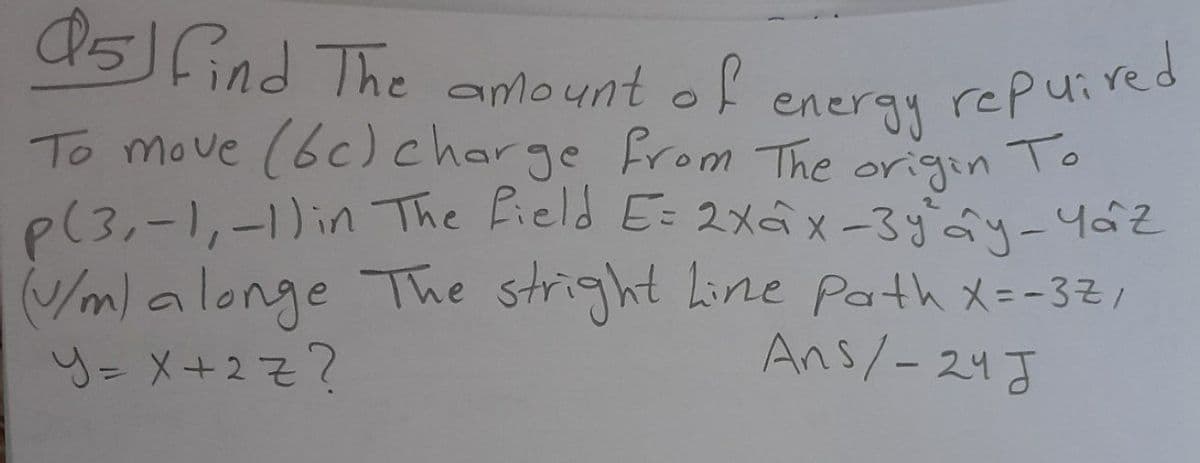 Q5] find The amount of energy repuired
To move (6c) charge from The origin To
p(3,-1,-1) in The field E= 2xâx -3y² ây - 4âz
(v/m) a longe The stright Line path x=-3z,
y= x+2z?
Ans/- 24 J